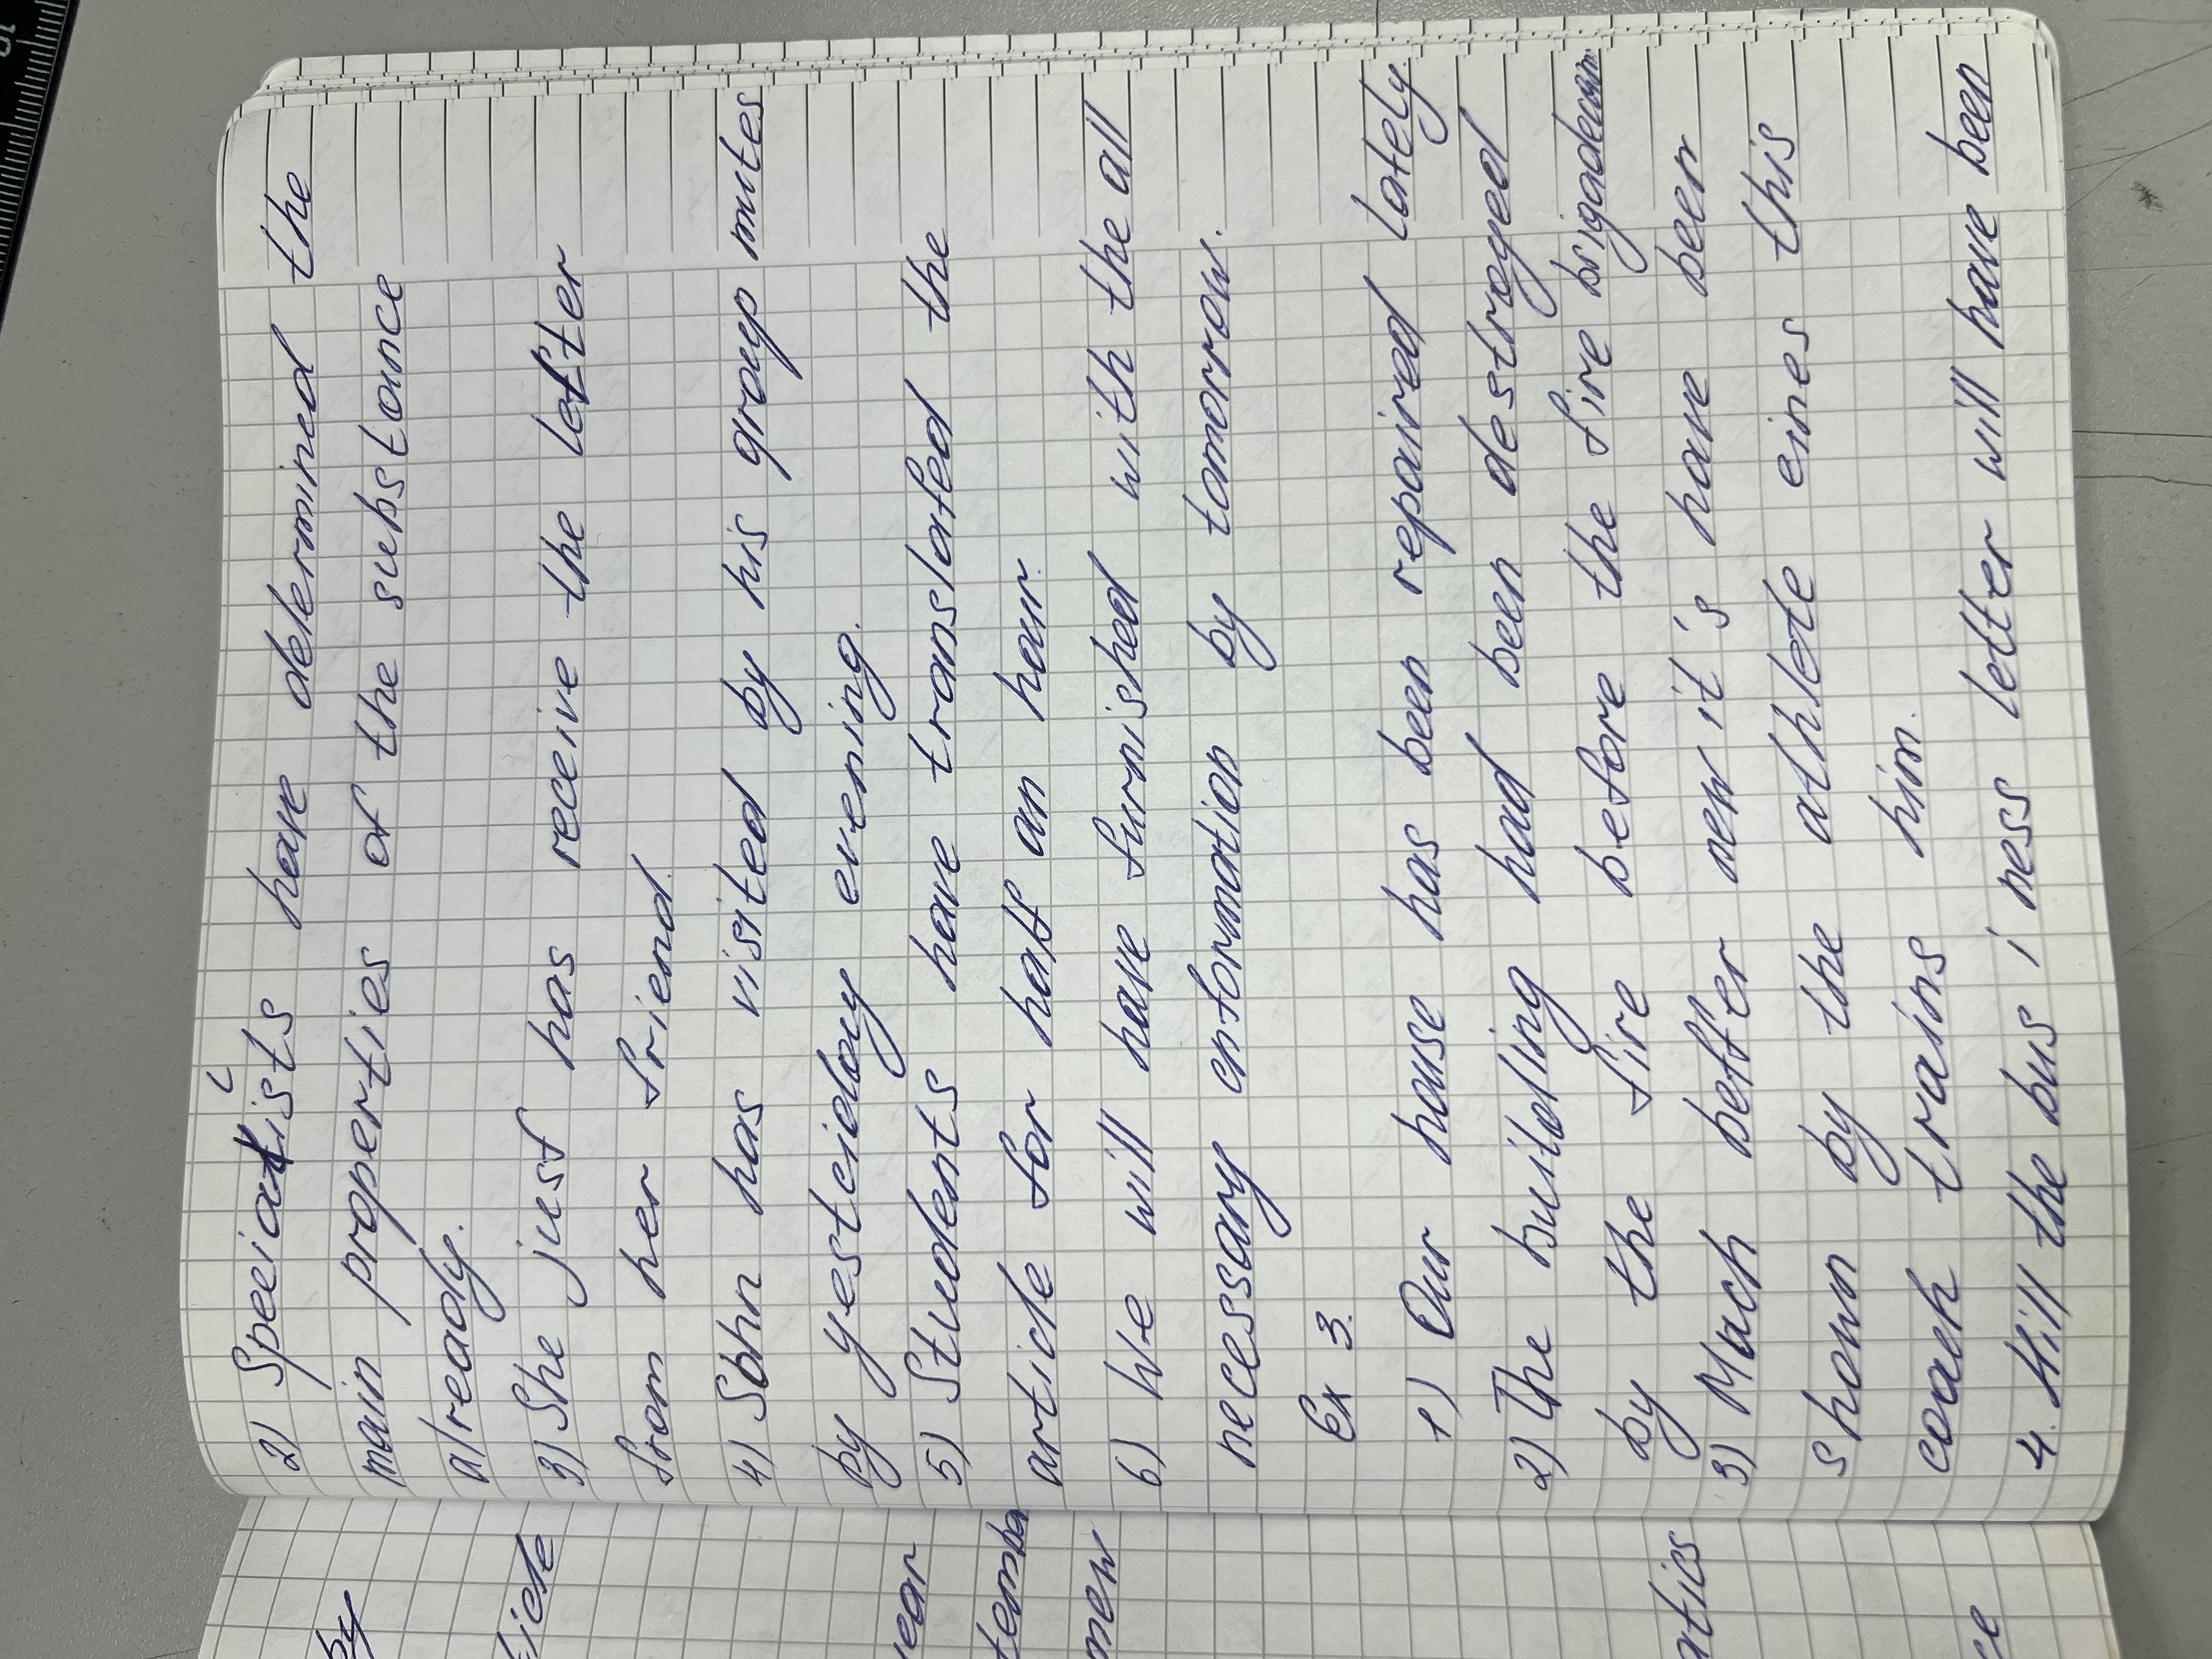 2) Specialists have determined the
main properties of the substance
already.
3) She just has receive the letter
from her friend.
4) John has visited by his group mates
by yesteiday evening.
5) Students have translated the
article for half an hour.
6) We will have furnished with the all
necessary enformation by tomorrow.
Ex 3.
1) Our house has been repaired lately.
2) The building had been destroyed
by the fire before the fire brigade
3) Much better new it's have been
shown by the athlete eines this
coach trains him.
4. Will the bus i ness letter will have been
by
year
tember
new
atics